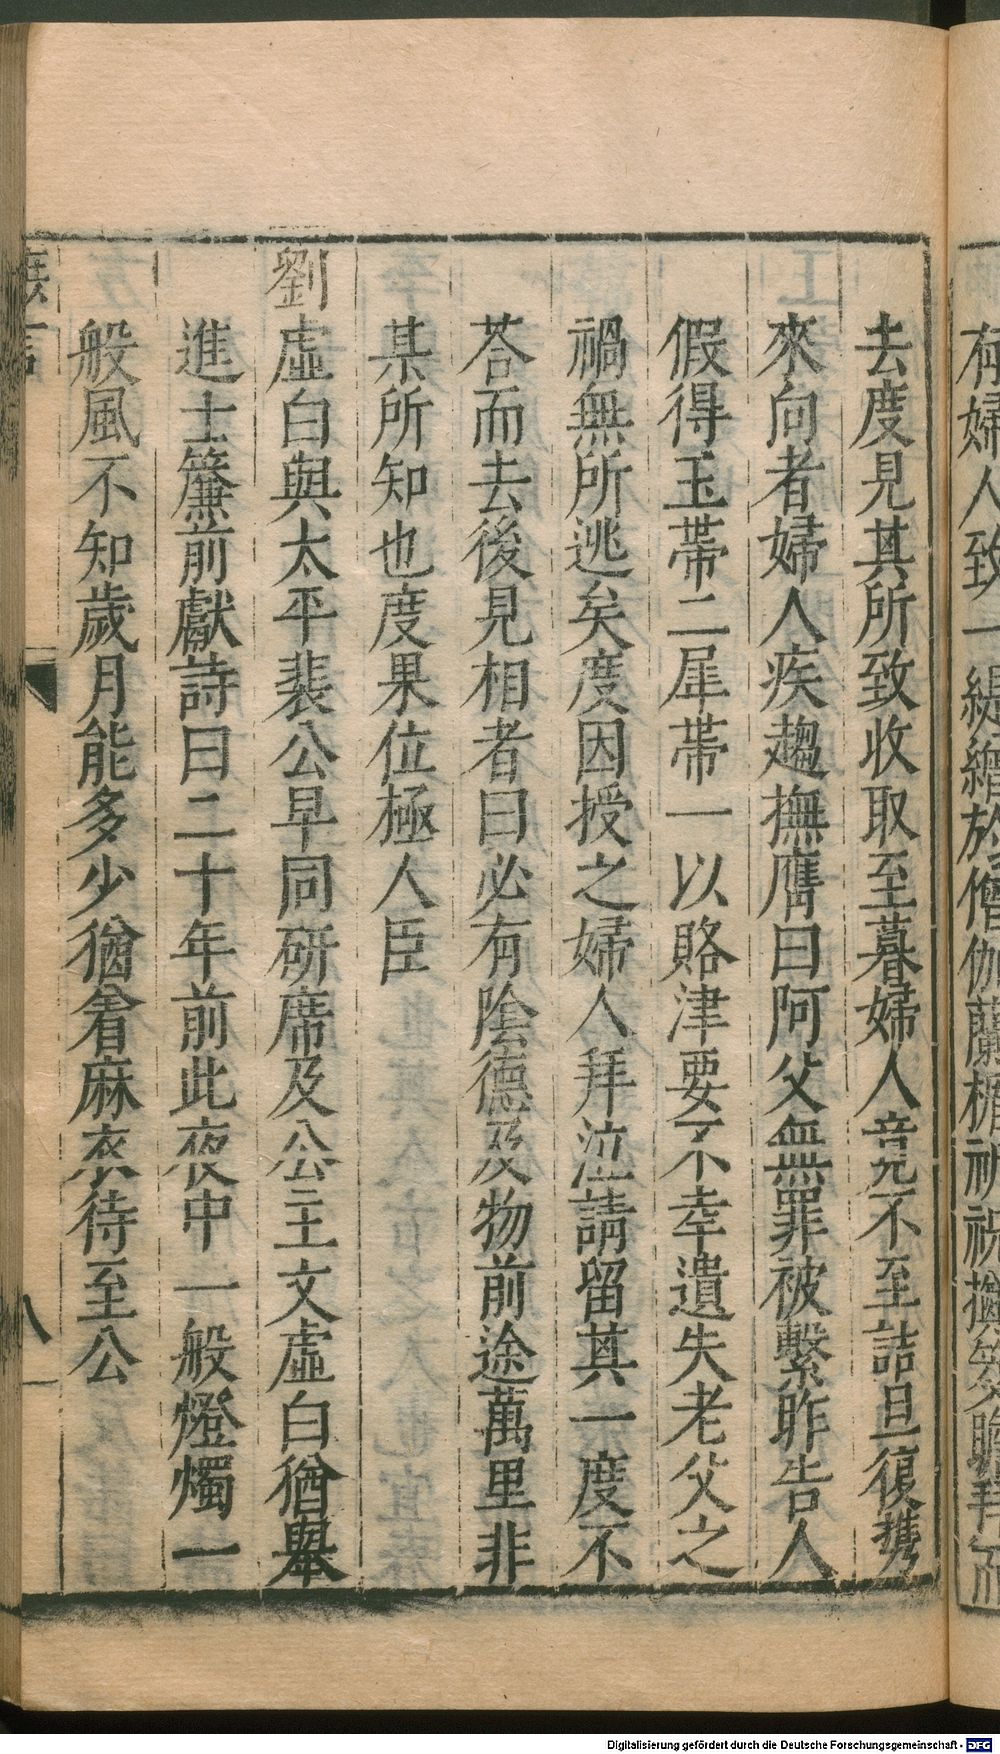 有婦人致一緹繒於僧伽蘭楯祈祝擲筊瞻拜而
去度見其所致收取至暮婦人竟不至詰旦復攜
來向者婦人疾趨撫膺曰阿父無罪被繫昨告人
假得玉帶二犀帶一以賂津要不幸遺失老父之
禍無所逃矣度因授之婦人拜泣請留其一度不
荅而去後見相者曰必有陰德及物前途萬里非
某所知也度果位極人臣
劉虛白與太平裴公早同研席及公主文虛白猶舉
進士簾前獻詩曰二十年前此夜中一般燈燭一
般風不知歲月能多少猶着麻衣待至公
八
Digitalisierung gefördert durch die Deutsche Forschungsgemeinschaft - DFG